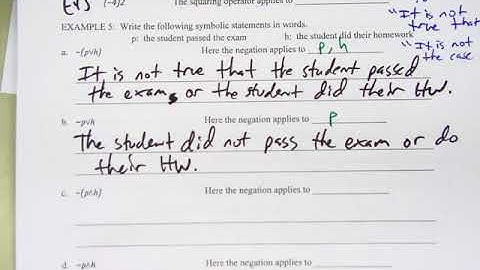 EX5 (-4)2 The squaring operator applies to
"It is not
true that
EXAMPLE 5: Write the following symbolic statements in words.
p: the student passed the exam h: the student did their homework
"It is not
the case
a. ~(p∨h) Here the negation applies to p, h
It is not true that the student passed
the exam or the student did their HW.
b. ~p∨h Here the negation applies to p
The student did not pass the exam or do
their HW.
c. ~(p∧h) Here the negation applies to
d. ~p∧h Here the negation applies to